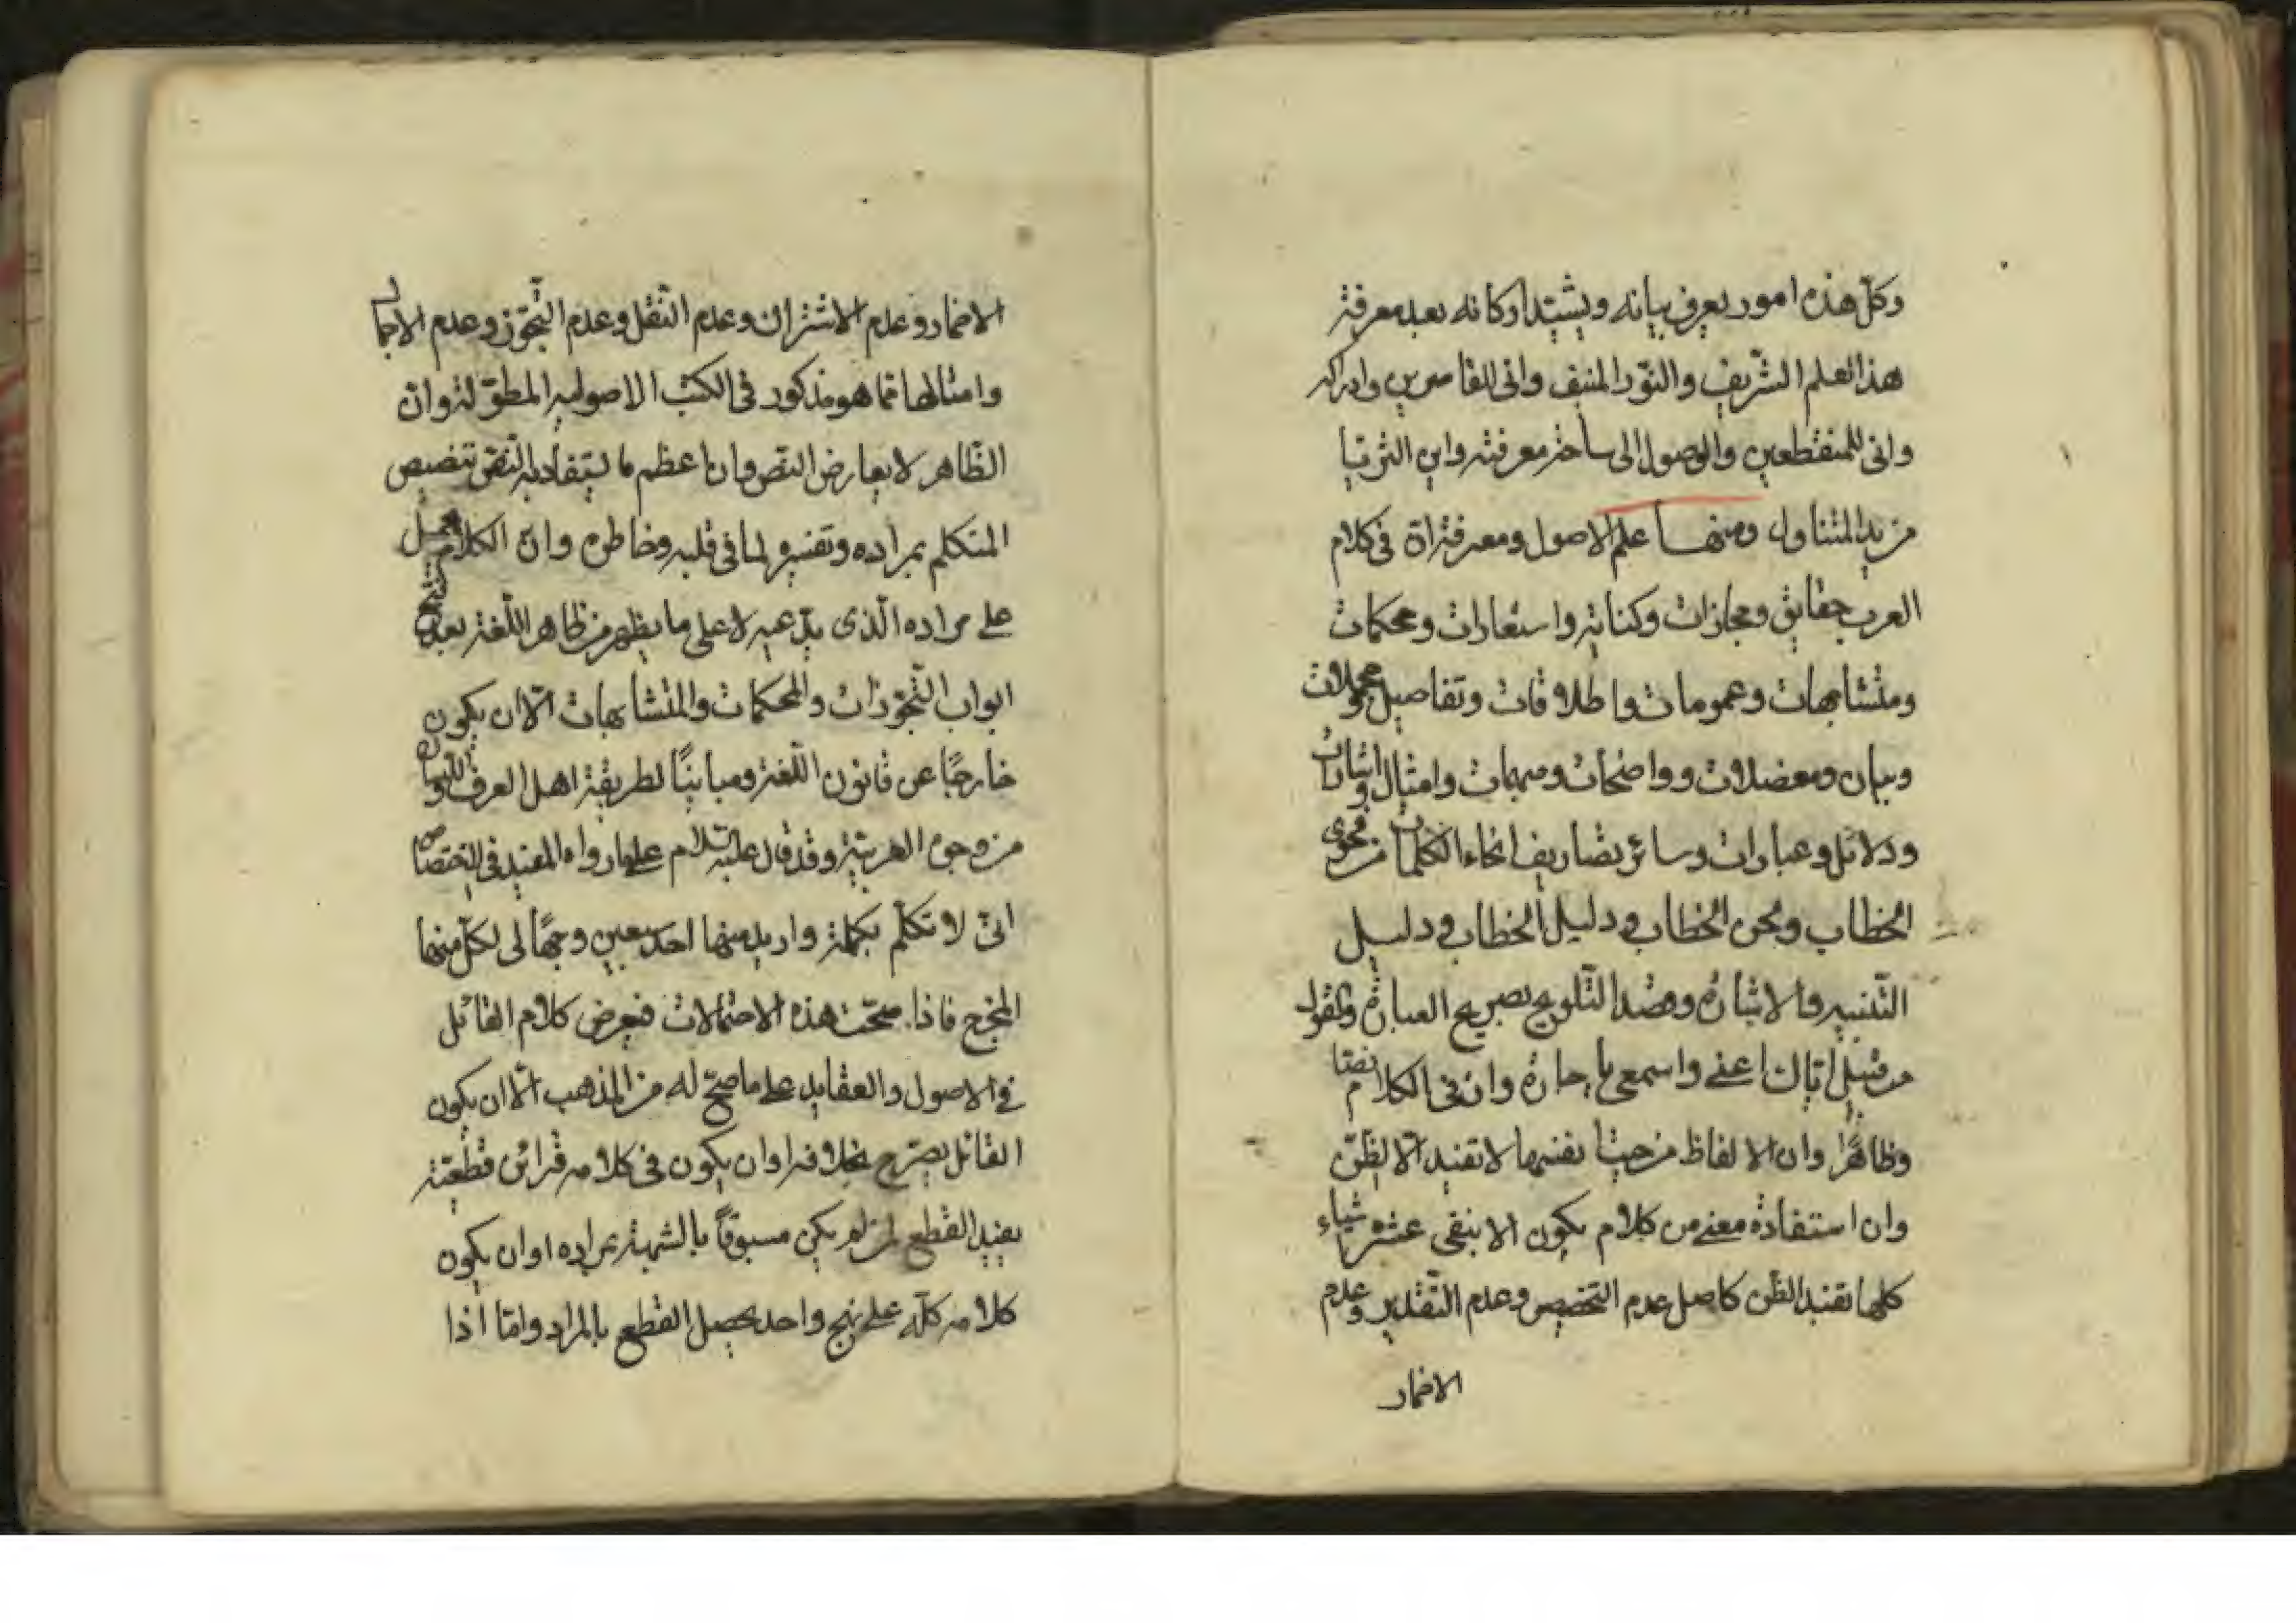 وكلّ هذه امور يعرف بيانه ويشيّد اركانه بعد معرفة
هذا العلم الشّريف والنّور المنيف وانى للقاصرين وادراكه
وانى للمنقطعين والوصول الى ساحة معرفته واين الثريا
من يد المتناول ومنها علم الاصول ومعرفة انّ فى كلام
العرب حقايق ومجازات وكناية واستعارات ومحكمات
ومتشابهات وعمومات واطلاقات وتفاصيل ومجملات
وبيان ومعضلات وواضحات ومبهمات وامثال واشارات
ودلائل وعبارات وسائر تصاريف انحاء الكلمات من فحوى
الخطاب ولحن الخطاب ودليل الخطاب ودليل
التّنبيه والاشارة وقصد التّلويح بصريح العبارة والقول
من قبيل ايّاك اعنى واسمعى يا جارة وان فى الكلام نصّا
وظاهرًا وان الالفاظ من حيث نفسها لا تفيد الّا الظّنّ
وان استفادة معنى من كلام يكون الا بنفى عشر اشياء
كلها تفيد الظّن كاصل عدم التخصيص وعدم التّقدير وعدم
الاضمار
الاضمار وعدم الاشتراك وعدم النّقل وعدم التّجوّز وعدم الاجمال
وامثالها ممّا هو مذكور فى الكتب الاصولية المطوّلة وان
الظّاهر لا يعارض النصّ وان اعظم ما يستفاد به النّصّ تنصيص
المتكلم بمراده وتفسيره لما فى قلبه وخاطره وانّ الكلام يحمل
على مراده الّذى يدّعيه لا على ما يظهر من ظاهر اللّغة بعد فتح
ابواب التّجوّزات والمحكمات والمتشابهات الّا ان يكون
خارجًا عن قانون اللّغة ومباينًا لطريقة اهل العرف واللّسان
من وجوه العربيّة وقد قال عليه السّلام على ما رواه المفيد فى الاختصاص
انىّ لاتكلّم بكلمة واريد منها احد سبعين وجهًا لى لكلّ منها
المخرج فاذا صحّت هذه الاحتمالات فيعرض كلام القائل
فى الاصول والعقايد على ما صحّ له من المذهب الّا ان يكون
القائل يصرّح بخلافه او ان يكون فى كلامه قرائن قطعيّة
يفيد القطع لمن لم يكن مسبوقًا بالشبهة بمراده او ان يكون
كلامه كلّه على نهج واحد يحصل القطع بالمراد وامّا اذا